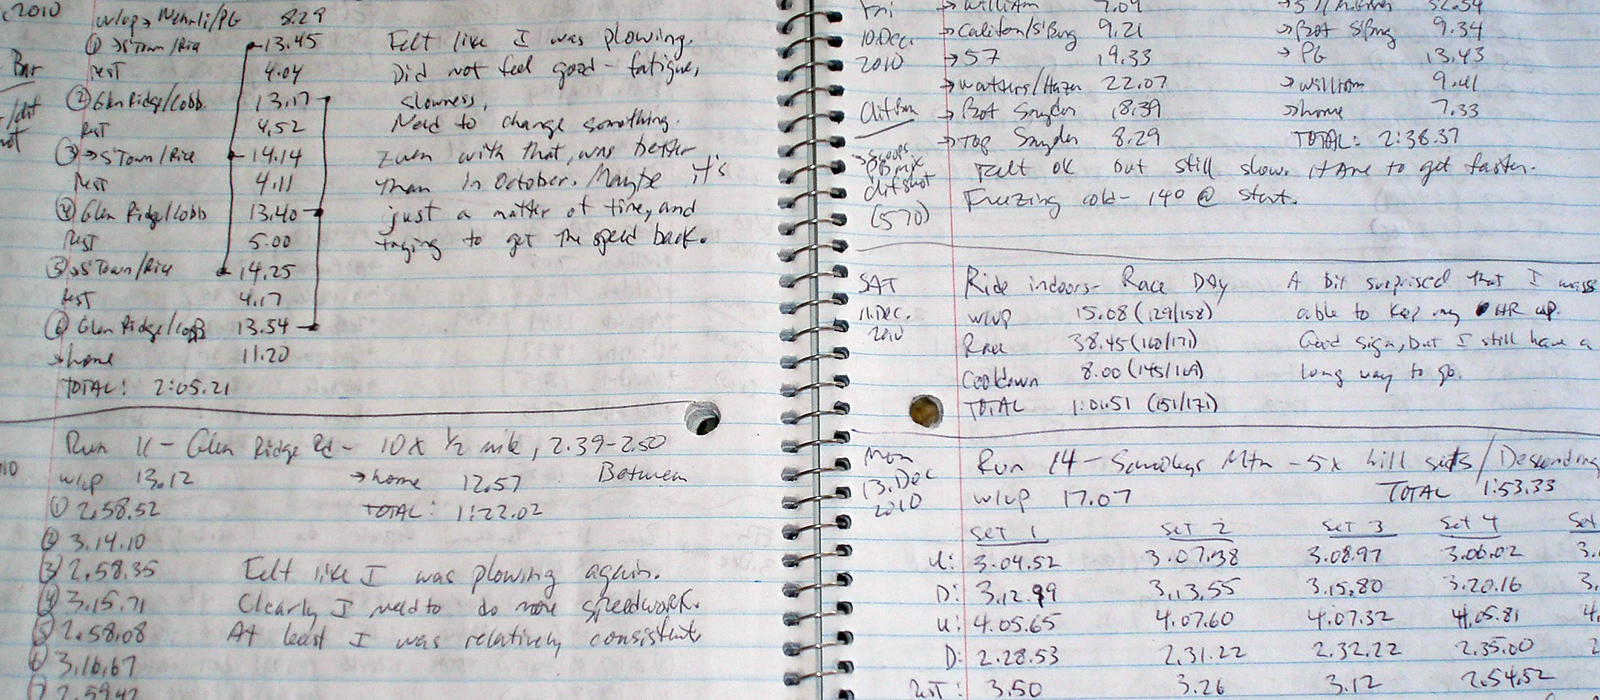 2010
w/up → Nehali/PG 8.29
① → S'Town/Rice 13.45 Felt like I was plowing.
Bar
rest 4.04 Did not feel good - fatigue,
② Glen Ridge/Cobb 13.17 slowness.
Rest 4.52 Need to change something.
③ → S'Town/Rice 14.14 Even with that, was better
rest 4.11 than in October. Maybe it's
④ Glen Ridge/Cobb 13.40 just a matter of time, and
Rest 5.00 trying to get the speed back.
⑤ → S'Town/Rice 14.25
rest 4.17
⑥ Glen Ridge/Cobb 13.54
→ home 11.20
TOTAL: 2:05.21
Run 11 - Glen Ridge Rd - 10 x 1/2 mile, 2.39-2.50
10
w/up 13.12 → home 12.57 Between
① 2.58.52 TOTAL: 1:22.02
② 3.14.10
③ 2.58.35 Felt like I was plowing again.
④ 3.15.71 Clearly I need to do more speedwork.
⑤ 2.58.08 At least I was relatively consistent
⑥ 3.16.67
⑦ 2.59.42
Fri → William 7.09 → 57/ 32.54
10.Dec. → Califon/S'Burg 9.21 → Bot S'Burg 9.34
2010 → 57 19.33 → PG 13.43
→ Watters/Hazen 22.07 → William 9.41
Clif Bar → Bot Snyder 18.39 → home 7.33
→ Top Snyder 8.29 TOTAL: 2:38.37
Felt ok but still slow. Have to get faster.
clif shot
(570) Freezing cold - 14° @ start.
SAT Ride indoors - Race Day A bit surprised that I was
11.Dec. w/up 15.08 (129/158) able to keep my HR up.
2010 Race 38.45 (160/171) Good sign, but I still have a
Cooldown 8.00 (145/169) long way to go.
TOTAL 1:01.51 (151/171)
Mon Run 14 - Schooleys Mtn - 5x hill sets/Descending
13.Dec w/up 17.07 TOTAL 1:53.33
2010
Set 1 Set 2 Set 3 Set 4 Set
U: 3.04.52 3.07.38 3.08.97 3.06.02 3.
D: 3.12.99 3.13.55 3.15.80 3.20.16 3.
U: 4.05.65 4.07.60 4.07.32 4.05.81 4.
D: 2.28.53 2.31.22 2.32.22 2.35.00 2
Rest: 3.50 3.26 3.12 2.54.52